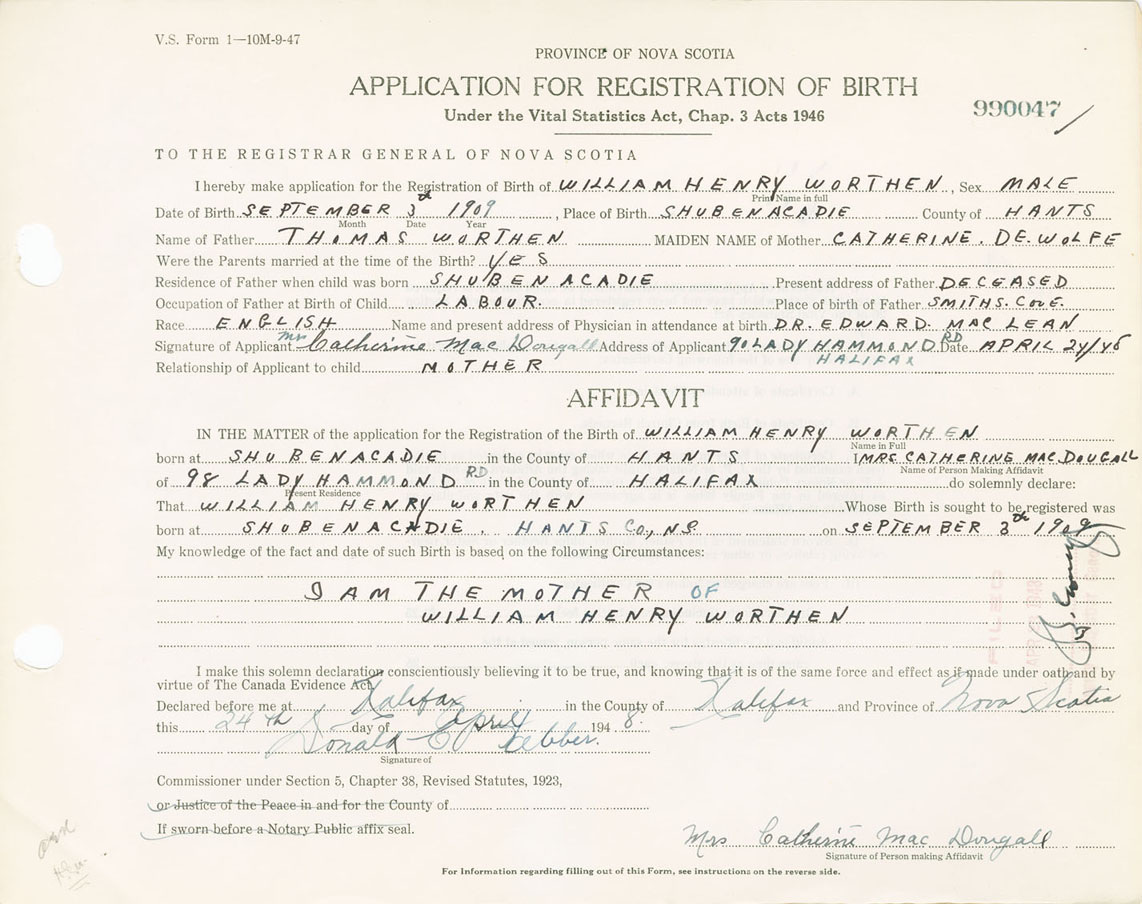 V.S. Form 1—10M-9-47
PROVINCE OF NOVA SCOTIA
APPLICATION FOR REGISTRATION OF BIRTH
Under the Vital Statistics Act, Chap. 3 Acts 1946
990047
TO THE REGISTRAR GENERAL OF NOVA SCOTIA
I hereby make application for the Registration of Birth of WILLIAM HENRY WORTHEN, Sex MALE
Print Name in full
Date of Birth SEPTEMBER 3th 1909, Place of Birth SHUBENACADIE County of HANTS
Month Date Year
Name of Father THOMAS WORTHEN MAIDEN NAME of Mother CATHERINE. DE. WOLFE
Were the Parents married at the time of the Birth? YES
Residence of Father when child was born SHUBENACADIE Present address of Father DECEASED
Occupation of Father at Birth of Child LABOUR. Place of birth of Father SMITHS. COVE.
Race ENGLISH Name and present address of Physician in attendance at birth DR. EDWARD. MAC LEAN
Signature of Applicant Mrs Catherine Mac Dougall Address of Applicant 90 LADY HAMMOND RD Date APRIL 24/48
HALIFAX
Relationship of Applicant to child MOTHER
AFFIDAVIT
IN THE MATTER of the application for the Registration of the Birth of WILLIAM HENRY WORTHEN
Name in Full
born at SHUBENACADIE in the County of HANTS I MRS. CATHERINE MACDOUGALL
Name of Person Making Affidavit
of 98 LADY HAMMOND RD in the County of HALIFAX do solemnly declare:
Present Residence
That WILLIAM HENRY WORTHEN Whose Birth is sought to be registered was
born at SHUBENACADIE. HANTS CO., N.S. on SEPTEMBER 3th 1909
My knowledge of the fact and date of such Birth is based on the following Circumstances:
I AM THE MOTHER OF
WILLIAM HENRY WORTHEN
I make this solemn declaration conscientiously believing it to be true, and knowing that it is of the same force and effect as if made under oath and by
virtue of The Canada Evidence Act.
Declared before me at Halifax in the County of Halifax and Province of Nova Scotia
this 24th day of April 1948.
Donald C Webber.
Signature of
Commissioner under Section 5, Chapter 38, Revised Statutes, 1923,
or Justice of the Peace in and for the County of
If sworn before a Notary Public affix seal.
Mrs Catherine Mac Dougall
Signature of Person making Affidavit
For Information regarding filling out of this Form, see instructions on the reverse side.